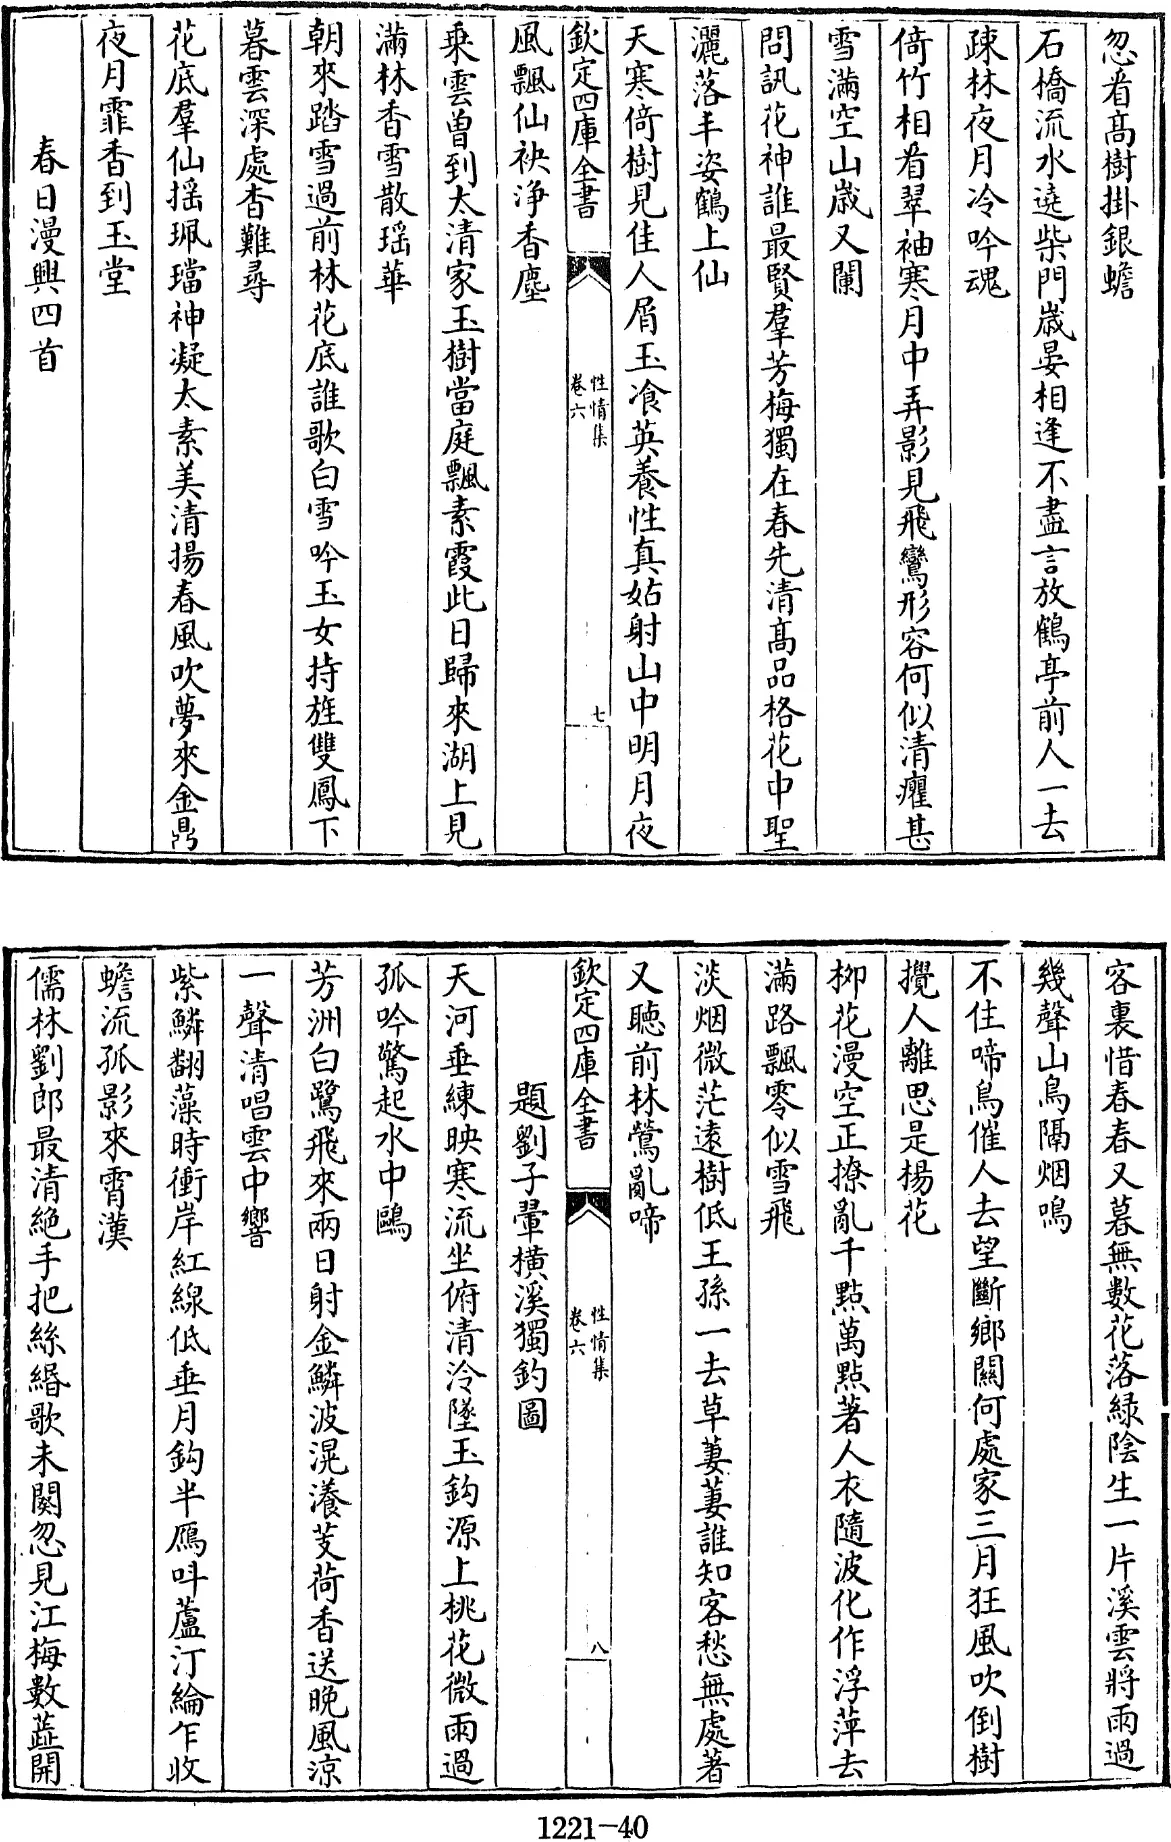 忽看髙樹掛銀蟾
石橋流水遶柴門嵗晏相逢不盡言放鶴亭前人一去
疎林夜月冷吟魂
倚竹相看翠袖寒月中弄影見飛鸞形容何似清癯甚
雪滿空山嵗又闌
問訊花神誰最賢羣芳梅獨在春先清髙品格花中聖
灑落丰姿鶴上仙
天寒倚樹見佳人屑玉飡英養性真姑射山中明月夜
欽定四庫全書
性情集
卷六
七
風飄仙袂浄香塵
乗雲曽到太清家玉樹當庭飄素霞此日歸來湖上見
滿林香雪散瑶華
朝來踏雪過前林花底誰歌白雪吟玉女持旌雙鳳下
暮雲深處杳難尋
花底羣仙揺珮璫神凝太素美清揚春風吹夢來金鼎
夜月霏香到玉堂
春日漫興四首
客裏惜春春又暮無數花落緑陰生一片溪雲將雨過
幾聲山鳥隔烟鳴
不住啼鳥催人去望斷鄉關何處家三月狂風吹倒樹
攪人離思是楊花
栁花漫空正撩亂千點萬點著人衣隨波化作浮萍去
滿路飄零似雪飛
淡烟微茫遠樹低王孫一去草萋萋誰知客愁無處著
又聽前林鶯亂啼
欽定四庫全書
性情集
卷六
八
題劉子翬横溪獨釣圖
天河垂練映寒流坐俯清泠墜玉鈎源上桃花微雨過
孤吟驚起水中鷗
芳洲白鷺飛來兩日射金鱗波滉瀁芰荷香送晚風涼
一聲清唱雲中響
紫鱗翻藻時衝岸紅線低垂月鈎半鴈呌蘆汀綸乍收
蟾流孤影來霄漢
儒林劉郎最清絶手把絲緡歌未闋忽見江梅數蘂開
1221-40